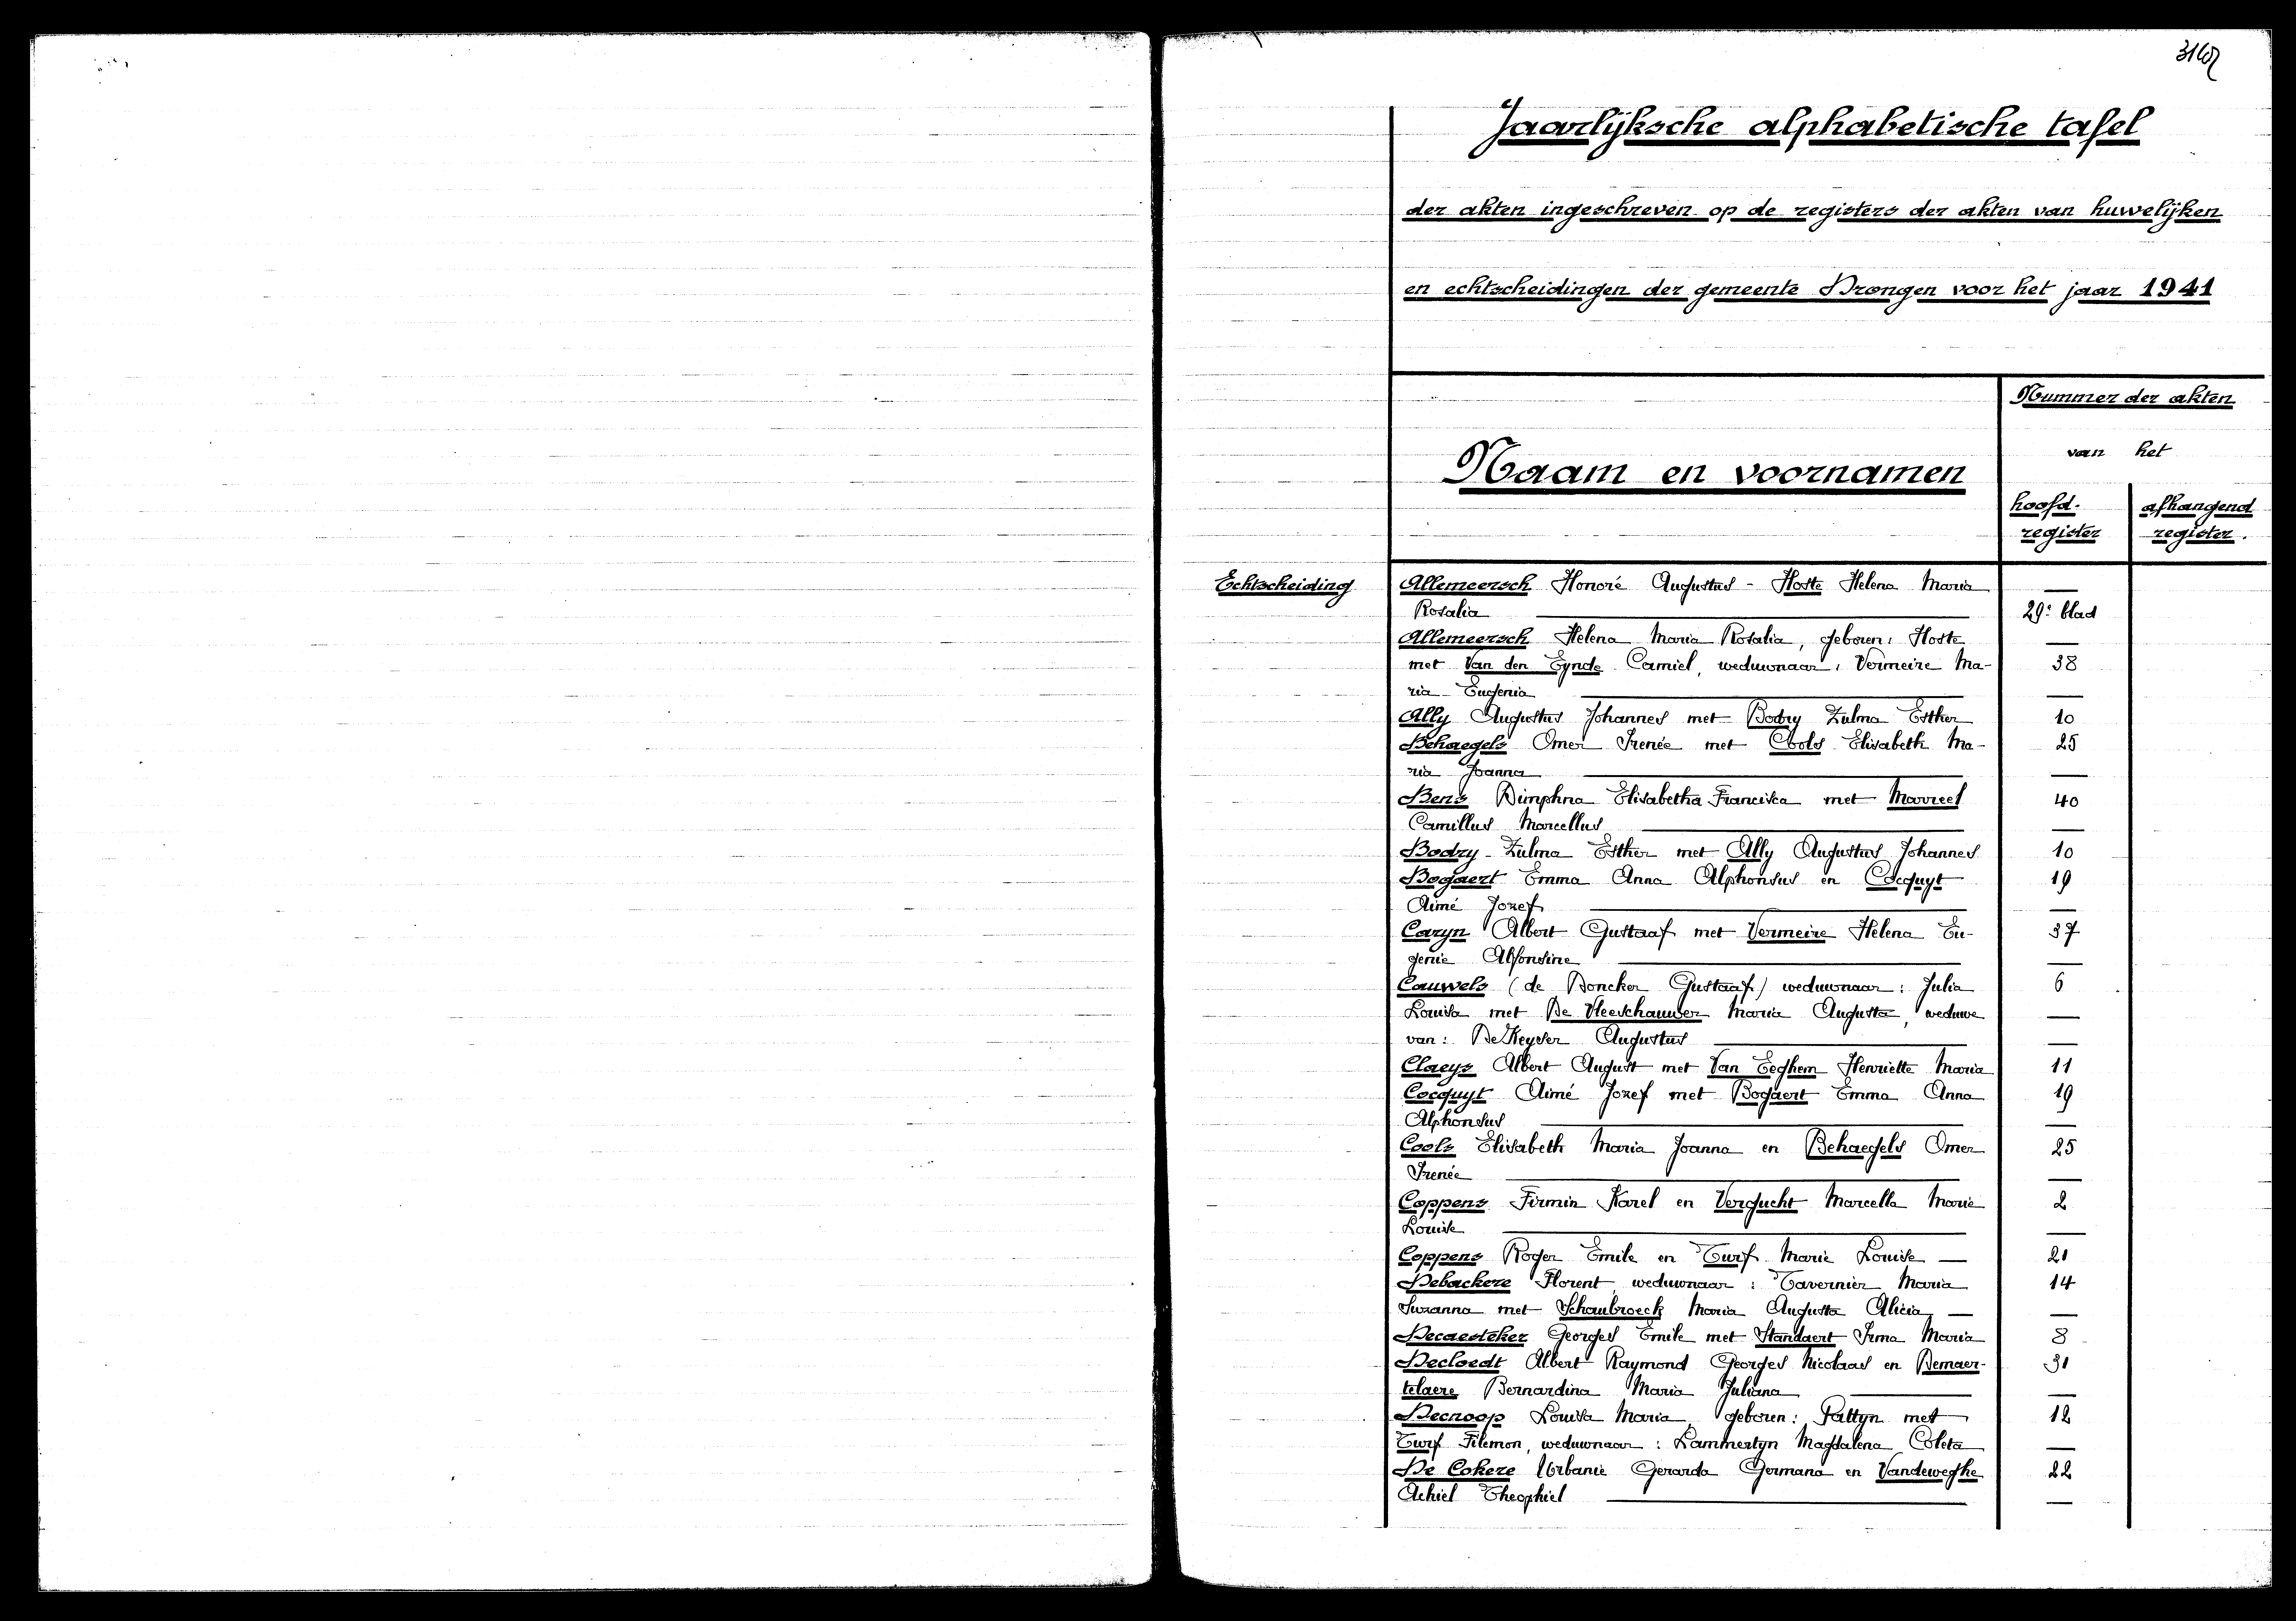 Jaarlijksche alphabetische tafel
der akten ingeschreven op de registers der akten van huwelijken
en echtscheidingen der gemeente Drongen voor het jaar 1941
Nummer der akten
van het
Naam en voornamen
hoofd-
register
afhangend
register.
Echtscheiding Allemeersch Honoré Augustus - Hoste Helena Maria —
Rosalia 29e blad
Allemeersch Helena Maria Rosalia, geboren: Hoste —
met Van den Eynde Camiel, weduwnaar: Vermeire Ma- 38
ria Eugenia —
Ally Augustus Johannes met Bodry Zulma Esther 10
Behaegels Omer Irenée met Cools Elisabeth Ma- 25
ria Joanna —
Bens Dimphna Elisabetha Francisca met Mavreel 40
Camillus Marcellus —
Bodry Zulma Esther met Ally Augustus Johannes 10
Bogaert Emma Anna Alphonsus en Cocquyt 19
Aimé Jozef —
Caryn Albert Gustaaf met Vermeire Helena Eu- 37
genie Alfonsine —
Cauwels (de Doncker Gustaaf) weduwnaar: Julia 6
Louisa met De Vleeschauwer Maria Augusta, weduwe —
van: De Keyser Augustus —
Claeys Albert August met Van Eeghem Henriette Maria 11
Cocquyt Aimé Jozef met Bogaert Emma Anna 19
Alphonsus —
Cools Elisabeth Maria Joanna en Behaegels Omer 25
Irenée —
Coppens Firmin Karel en Vergucht Marcella Marie 2
Louise —
Coppens Roger Emile en Turf Marie Louise — 21
Debackere Florent, weduwnaar: Tavernier Maria 14
Suzanna met Schaubroeck Maria Augusta Alicia — —
Decaesteker Georges Emile met Standaert Irma Maria 8
Decloedt Albert Raymond Georges Nicolaas en Demaer- 31
telaere Bernardina Maria Juliana —
Decnoop Louisa Maria, geboren: Pattyn met 12
Turf Filemon, weduwnaar: Lammertyn Magdalena Coleta —
De Cokere Urbanie Gerarda Germana en Vandeweghe 22
Achiel Theophiel —